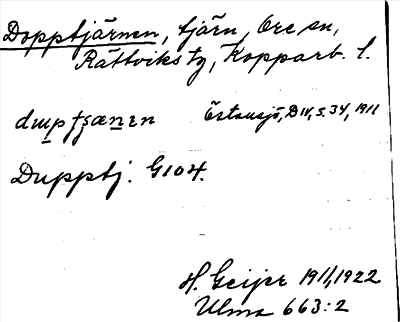 Dopptjärnen, tjärn, Ore sn,
Rättviks tg, Kopparb. l.
Östansjö, D IV, s. 34, 1911
Dupptj. G104.
H. Geijer 1911, 1922
Ulma 663:2